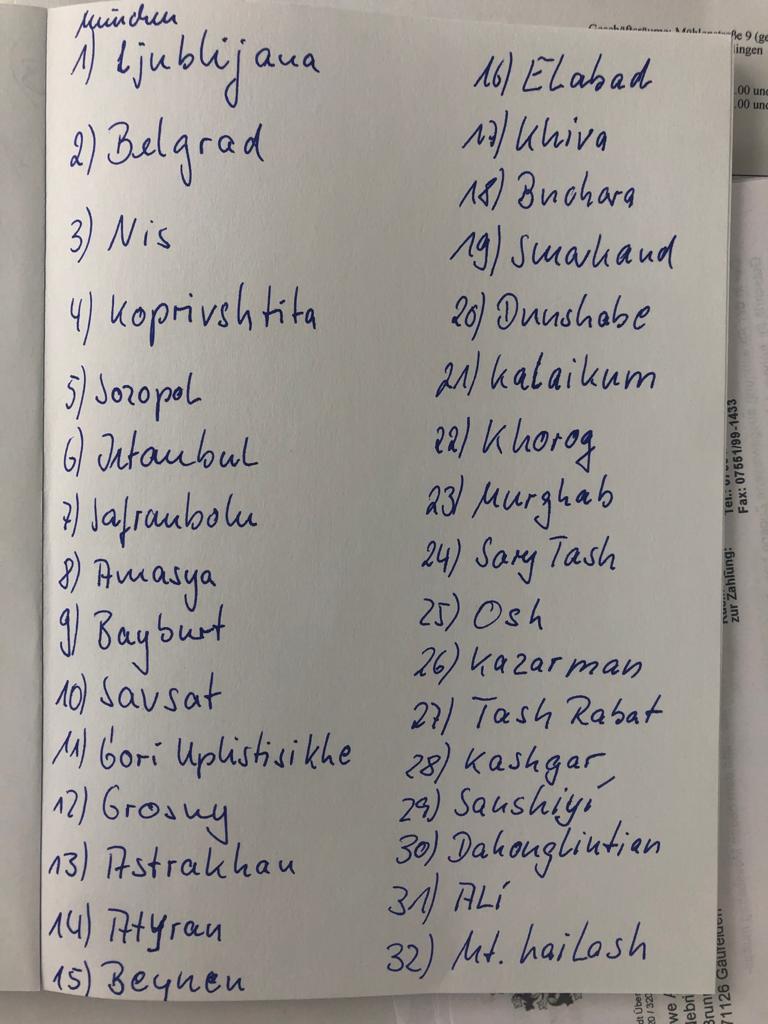 München
1) Ljublijana
2) Belgrad
3) Nis
4) Koprivshtita
5) Sozopol
6) Istanbul
7) Safranbolu
8) Amasya
9) Bayburt
10) Savsat
11) Gori Uplistisikhe
12) Grosny
13) Astrakhan
14) Atyrau
15) Beyneu
16) Elabad
17) Khiva
18) Buchara
19) Smarkand
20) Duushabe
21) Kalaikum
22) Khorog
23) Murghab
24) Sary Tash
25) Osh
26) Kazarman
27) Tash Rabat
28) Kashgar
29) Sanshiyí
30) Dahongliutian
31) Ali
32) Mt. Kailash
Tel.:
Fax: 07551/99-1433
zur Zahlung:
71126 Gäufelden